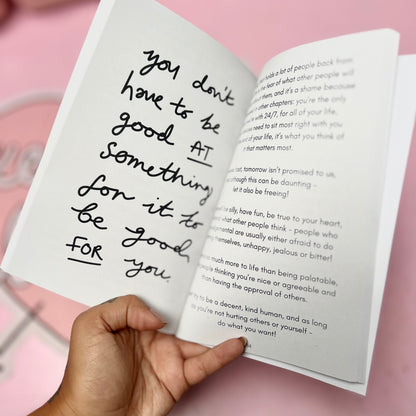 you don't
have to be
good AT
something
for it to
be good
FOR you.
holds a lot of people back from
the fear of what other people will
them, and it's a shame because
in other chapters: you're the only
with 24/7, for all of your life,
need to sit most right with you
of your life, it's what you think of
that matters most.
fast, tomorrow isn't promised to us,
though this can be daunting -
let it also be freeing!
silly, have fun, be true to your heart,
what other people think - people who
are usually either afraid to do
themselves, unhappy, jealous or bitter!
much more to life than being palatable,
people thinking you're nice or agreeable and
than having the approval of others.
try to be a decent, kind human, and as long
you're not hurting others or yourself -
do what you want!